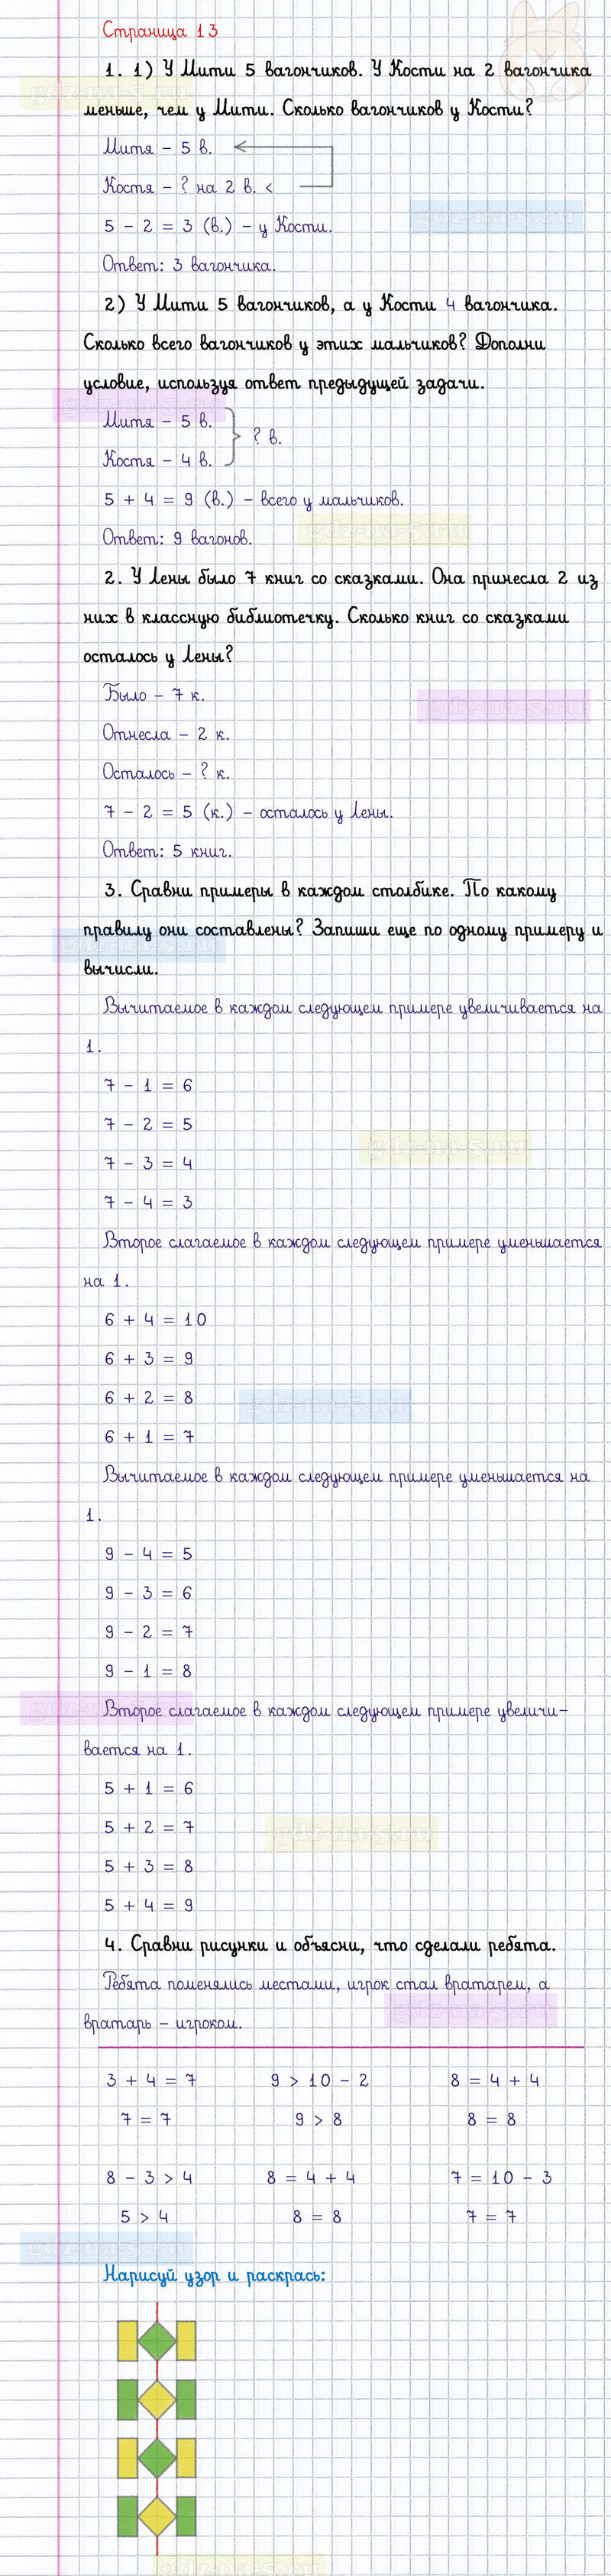 Страница 13
1. 1) У Мити 5 вагончиков. У Кости на 2 вагончика
меньше, чем у Мити. Сколько вагончиков у Кости?
Митя – 5 в.
Костя – ? на 2 в. <
5 – 2 = 3 (в.) – у Кости.
Ответ: 3 вагончика.
2) У Мити 5 вагончиков, а у Кости 4 вагончика.
Сколько всего вагончиков у этих мальчиков? Дополни
условие, используя ответ предыдущей задачи.
Митя – 5 в.
? в.
Костя – 4 в.
5 + 4 = 9 (в.) – всего у мальчиков.
Ответ: 9 вагонов.
2. У Лены было 7 книг со сказками. Она принесла 2 из
них в классную библиотечку. Сколько книг со сказками
осталось у Лены?
Было – 7 к.
Отнесла – 2 к.
Осталось – ? к.
7 – 2 = 5 (к.) – осталось у Лены.
Ответ: 5 книг.
3. Сравни примеры в каждом столбике. По какому
правилу они составлены? Запиши еще по одному примеру и
вычисли.
Вычитаемое в каждом следующем примере увеличивается на
1.
7 – 1 = 6
7 – 2 = 5
7 – 3 = 4
7 – 4 = 3
Второе слагаемое в каждом следующем примере уменьшается
на 1.
6 + 4 = 10
6 + 3 = 9
6 + 2 = 8
6 + 1 = 7
Вычитаемое в каждом следующем примере уменьшается на
1.
9 – 4 = 5
9 – 3 = 6
9 – 2 = 7
9 – 1 = 8
Второе слагаемое в каждом следующем примере увеличи–
вается на 1.
5 + 1 = 6
5 + 2 = 7
5 + 3 = 8
5 + 4 = 9
4. Сравни рисунки и объясни, что сделали ребята.
Ребята поменялись местами, игрок стал вратарем, а
вратарь – игроком.
3 + 4 = 7 9 > 10 – 2 8 = 4 + 4
7 = 7 9 > 8 8 = 8
8 – 3 > 4 8 = 4 + 4 7 = 10 – 3
5 > 4 8 = 8 7 = 7
Нарисуй узор и раскрась:
gdz-na-5.ru